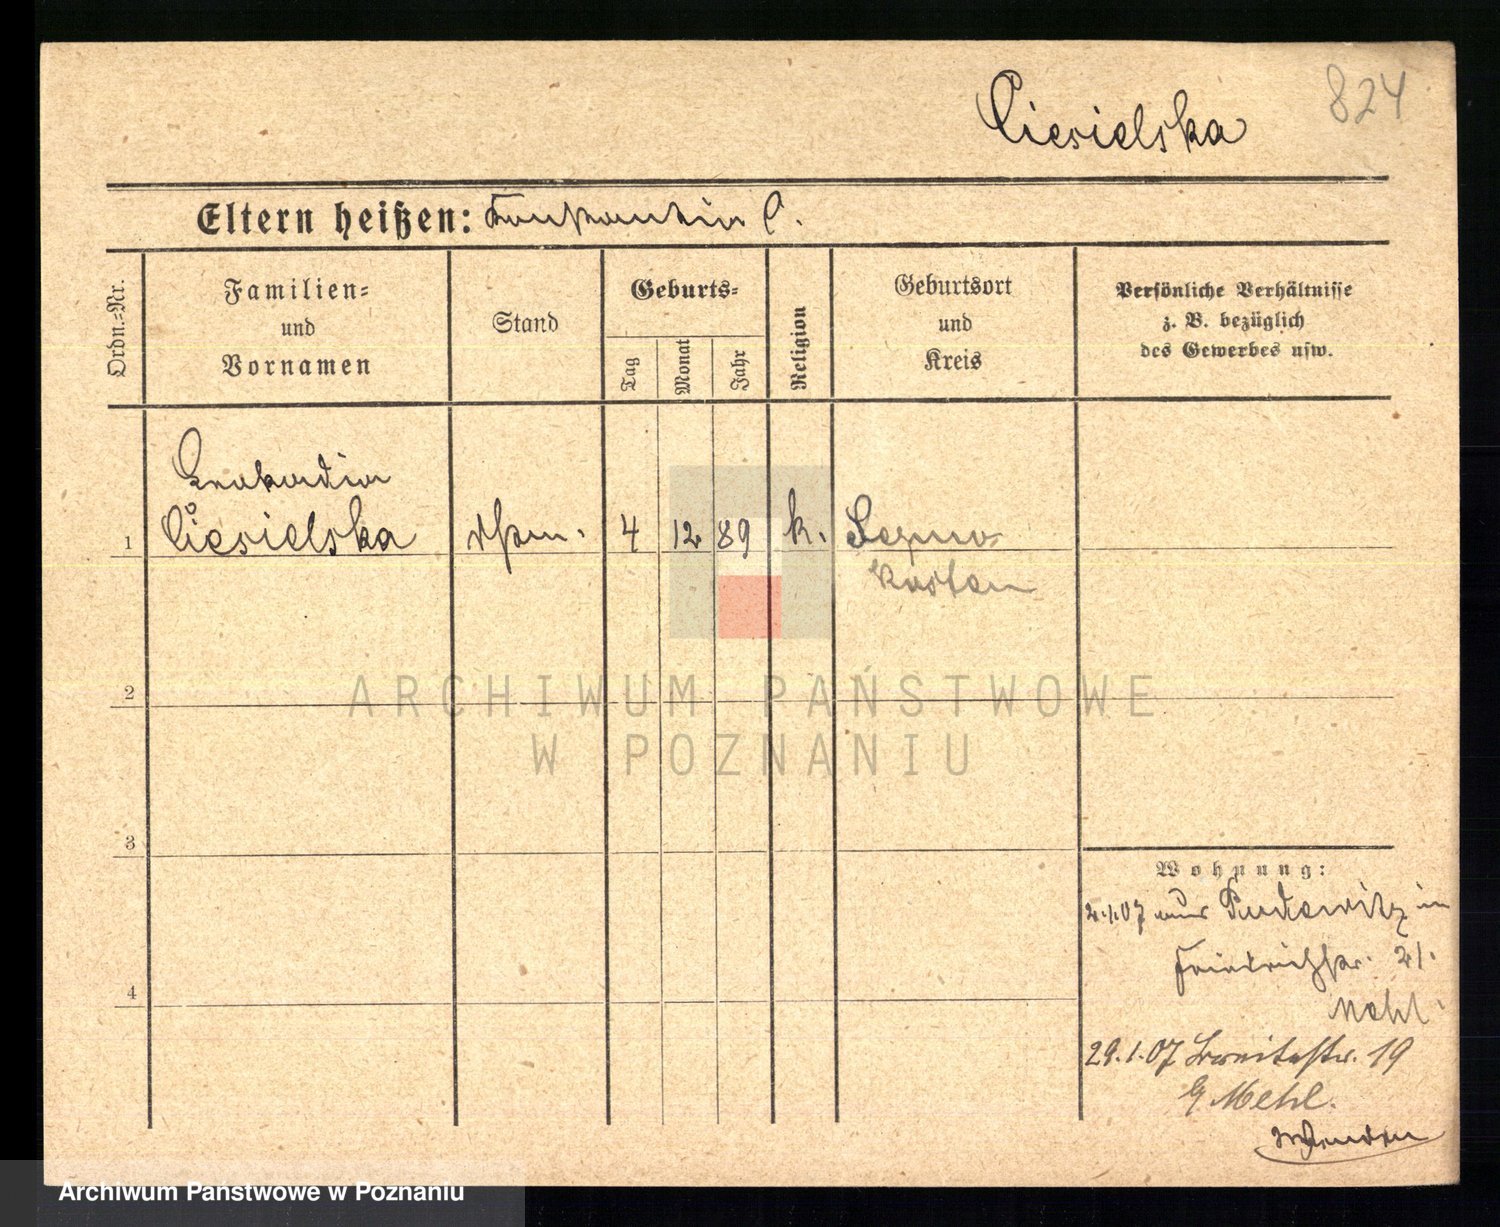 Ciesielska 824
Eltern heißen: Konstantin C.
Ordn.=Nr.
Familien=
und
Vornamen
Stand
Geburts=
Tag
Monat
Jahr
Religion
Geburtsort
und
Kreis
Persönliche Verhältnisse
z. B. bezüglich
des Gewerbes usw.
Leokardia
1 Ciesielska 4 12 89 k.
2
ARCHIWUM PAŃSTWOWE
W POZNANIU
3
4
Wohnung:
2.1.07 aus Pudewitz in
Friedrichstr. 21.
Mehl.
29.1.07 Breitestr. 19
Mehl.
Archiwum Państwowe w Poznaniu